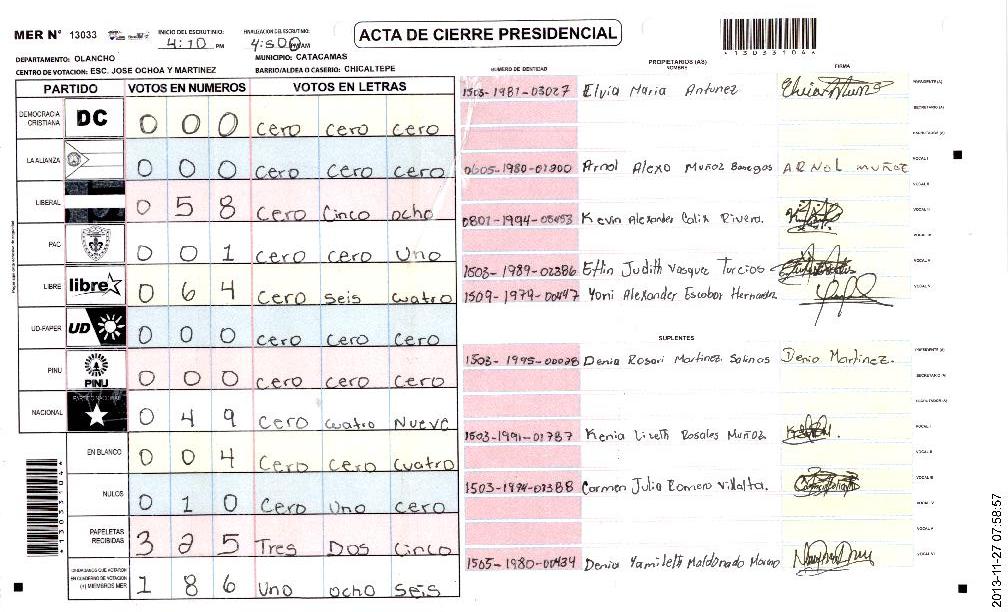 MER N° 13033
INICIO DEL ESCRUTINIO: 4:10 PM
FINALIZACION DEL ESCRUTINIO: 4:50
ACTA DE CIERRE PRESIDENCIAL
* 1 3 0 3 3 1 0 4 *
DEPARTAMENTO: OLANCHO
MUNICIPIO: CATACAMAS
CENTRO DE VOTACION: ESC. JOSE OCHOA Y MARTINEZ
BARRIO/ALDEA O CASERIO: CHICALTEPE
PARTIDO VOTOS EN NUMEROS VOTOS EN LETRAS
DEMOCRACIA CRISTIANA DC 0 0 0 cero cero cero
LA ALIANZA 0 0 0 cero cero cero
LIBERAL 0 5 8 cero cinco ocho
PAC 0 0 1 cero cero uno
LIBRE libre 0 6 4 cero seis cuatro
UD-FAPER UD 0 0 0 cero cero cero
PINU PINU 0 0 0 cero cero cero
NACIONAL 0 4 9 cero cuatro Nueve
EN BLANCO 0 0 4 cero cero cuatro
NULOS 0 1 0 cero uno cero
PAPELETAS RECIBIDAS 3 2 5 Tres Dos cinco
CIUDADANOS QUE VOTARON EN CUADERNO DE VOTACION (+) MIEMBROS MER 1 8 6 uno ocho seis
NUMERO DE IDENTIDAD PROPIETARIOS (AS) NOMBRE FIRMA
1503-1981-03027 Elvia Maria Antunez PRESIDENTE(A)
SECRETARIO (A)
ESCRUTADOR (A)
0605-1980-01300 Arnol Alexo Muñoz Banegas ARNOL MUÑOZ VOCAL I
VOCAL II
0801-1994-05453 Kevin Alexander Calix Rivera. VOCAL III
VOCAL IV
1503-1989-02386 Etlin Judith Vasquez Turcios VOCAL V
1509-1979-00447 Yoni Alexander Escobar Hernandz
SUPLENTES
1503-1995-00028 Denia Rosari Martinez Salinas Denia Martinez. PRESIDENTE (A)
SECRETARIO (A)
ESCRUTADOR (A)
1503-1991-01787 Kenia Lizeth Rosales Muñoz VOCAL I
VOCAL II
1503-1994-02388 Carmen Julia Romero Villalta. VOCAL III
VOCAL IV
VOCAL V
1505-1980-00434 Denia Yamileth Maldonado VOCAL VI
2013-11-27 07:58:57